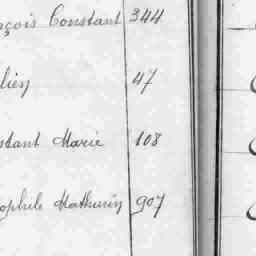 nçois Constant 344
lien 47
stant Marie 108
ophile Mathurin 907